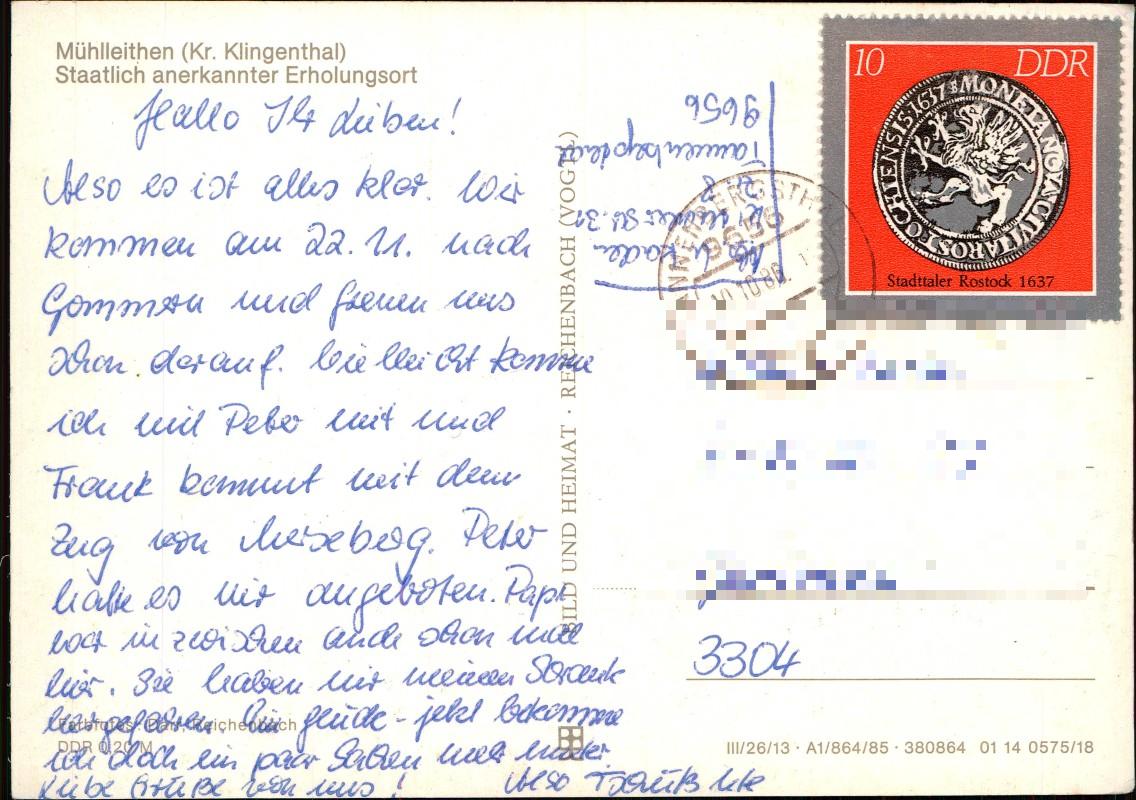 Mühlleithen (Kr. Klingenthal)
Staatlich anerkannter Erholungsort
Hallo Ihr Lieben!
Also es ist alles klar. Wir
kommen am 22.11. nach
Gommern und freuen uns
schon darauf. Vielleicht komme
ich mit Peter mit und
Frank kommt mit dem
Zug von Merseberg. Peter
hatte es mir angeboten. Papi
war inzwischen auch schon mal
hier. Sie haben mir meinen Schrank
Ein Glück - jetzt bekomme
ich doch ein paar Sachen mehr unter.
Liebe Grüße von uns! Also Tschüß
Farbfotos: Darr, Reichenbach
DDR 0,20 M
BILD UND HEIMAT · REICHENBACH (VOGTL)
Str. 31
Tannenbergsthal
9656
ANNENBERGSTHAL
9656
10.10.86
10 DDR
MONETA NO CIVITA ROSTOCHIENSIS 1637
Stadttaler Rostock 1637
3304
III/26/13 · A1/864/85 · 380864 01 14 0575/18